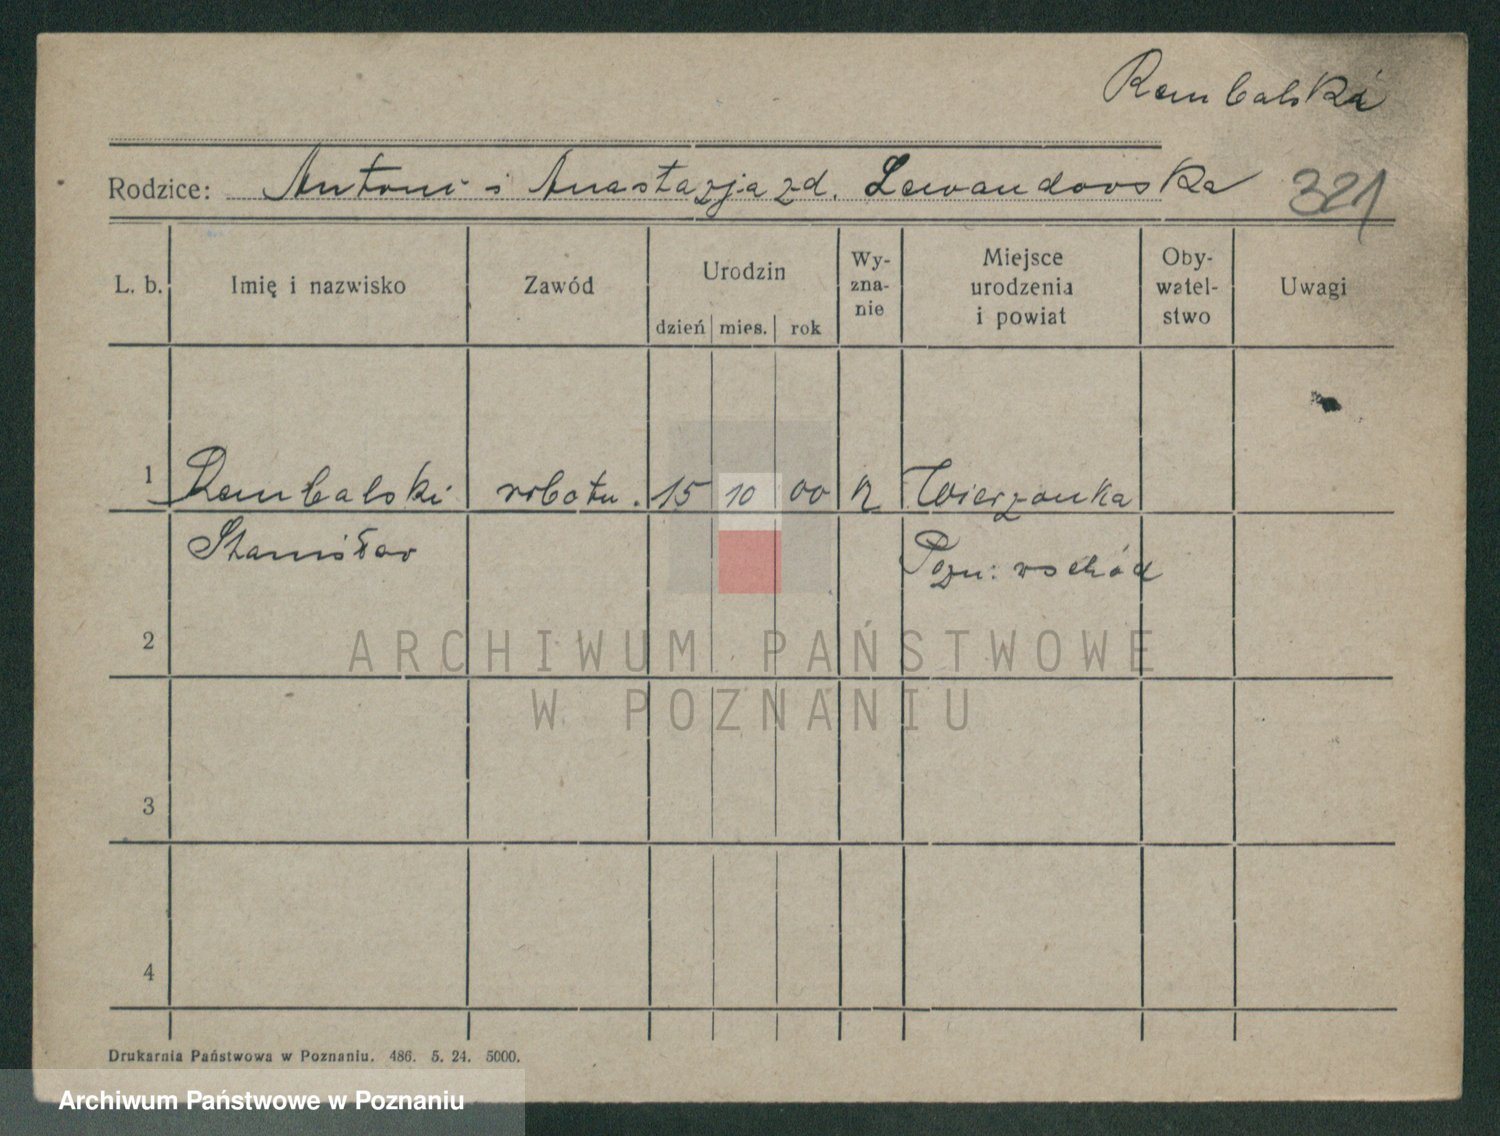 Rembalski
Rodzice: Antoni i Anastazja zd. Lewandowska 321
L. b. Imię i nazwisko Zawód Urodzin dzień mies. rok Wy-zna-nie Miejsce urodzenia i powiat Oby-watel-stwo Uwagi
1 Rembalski robotn. 15 10 00 k Wierzonka
Stanisław Pozn: wschód
2
ARCHIWUM PAŃSTWOWE
W POZNANIU
3
4
Drukarnia Państwowa w Poznaniu. 486. 5. 24. 5000.
Archiwum Państwowe w Poznaniu